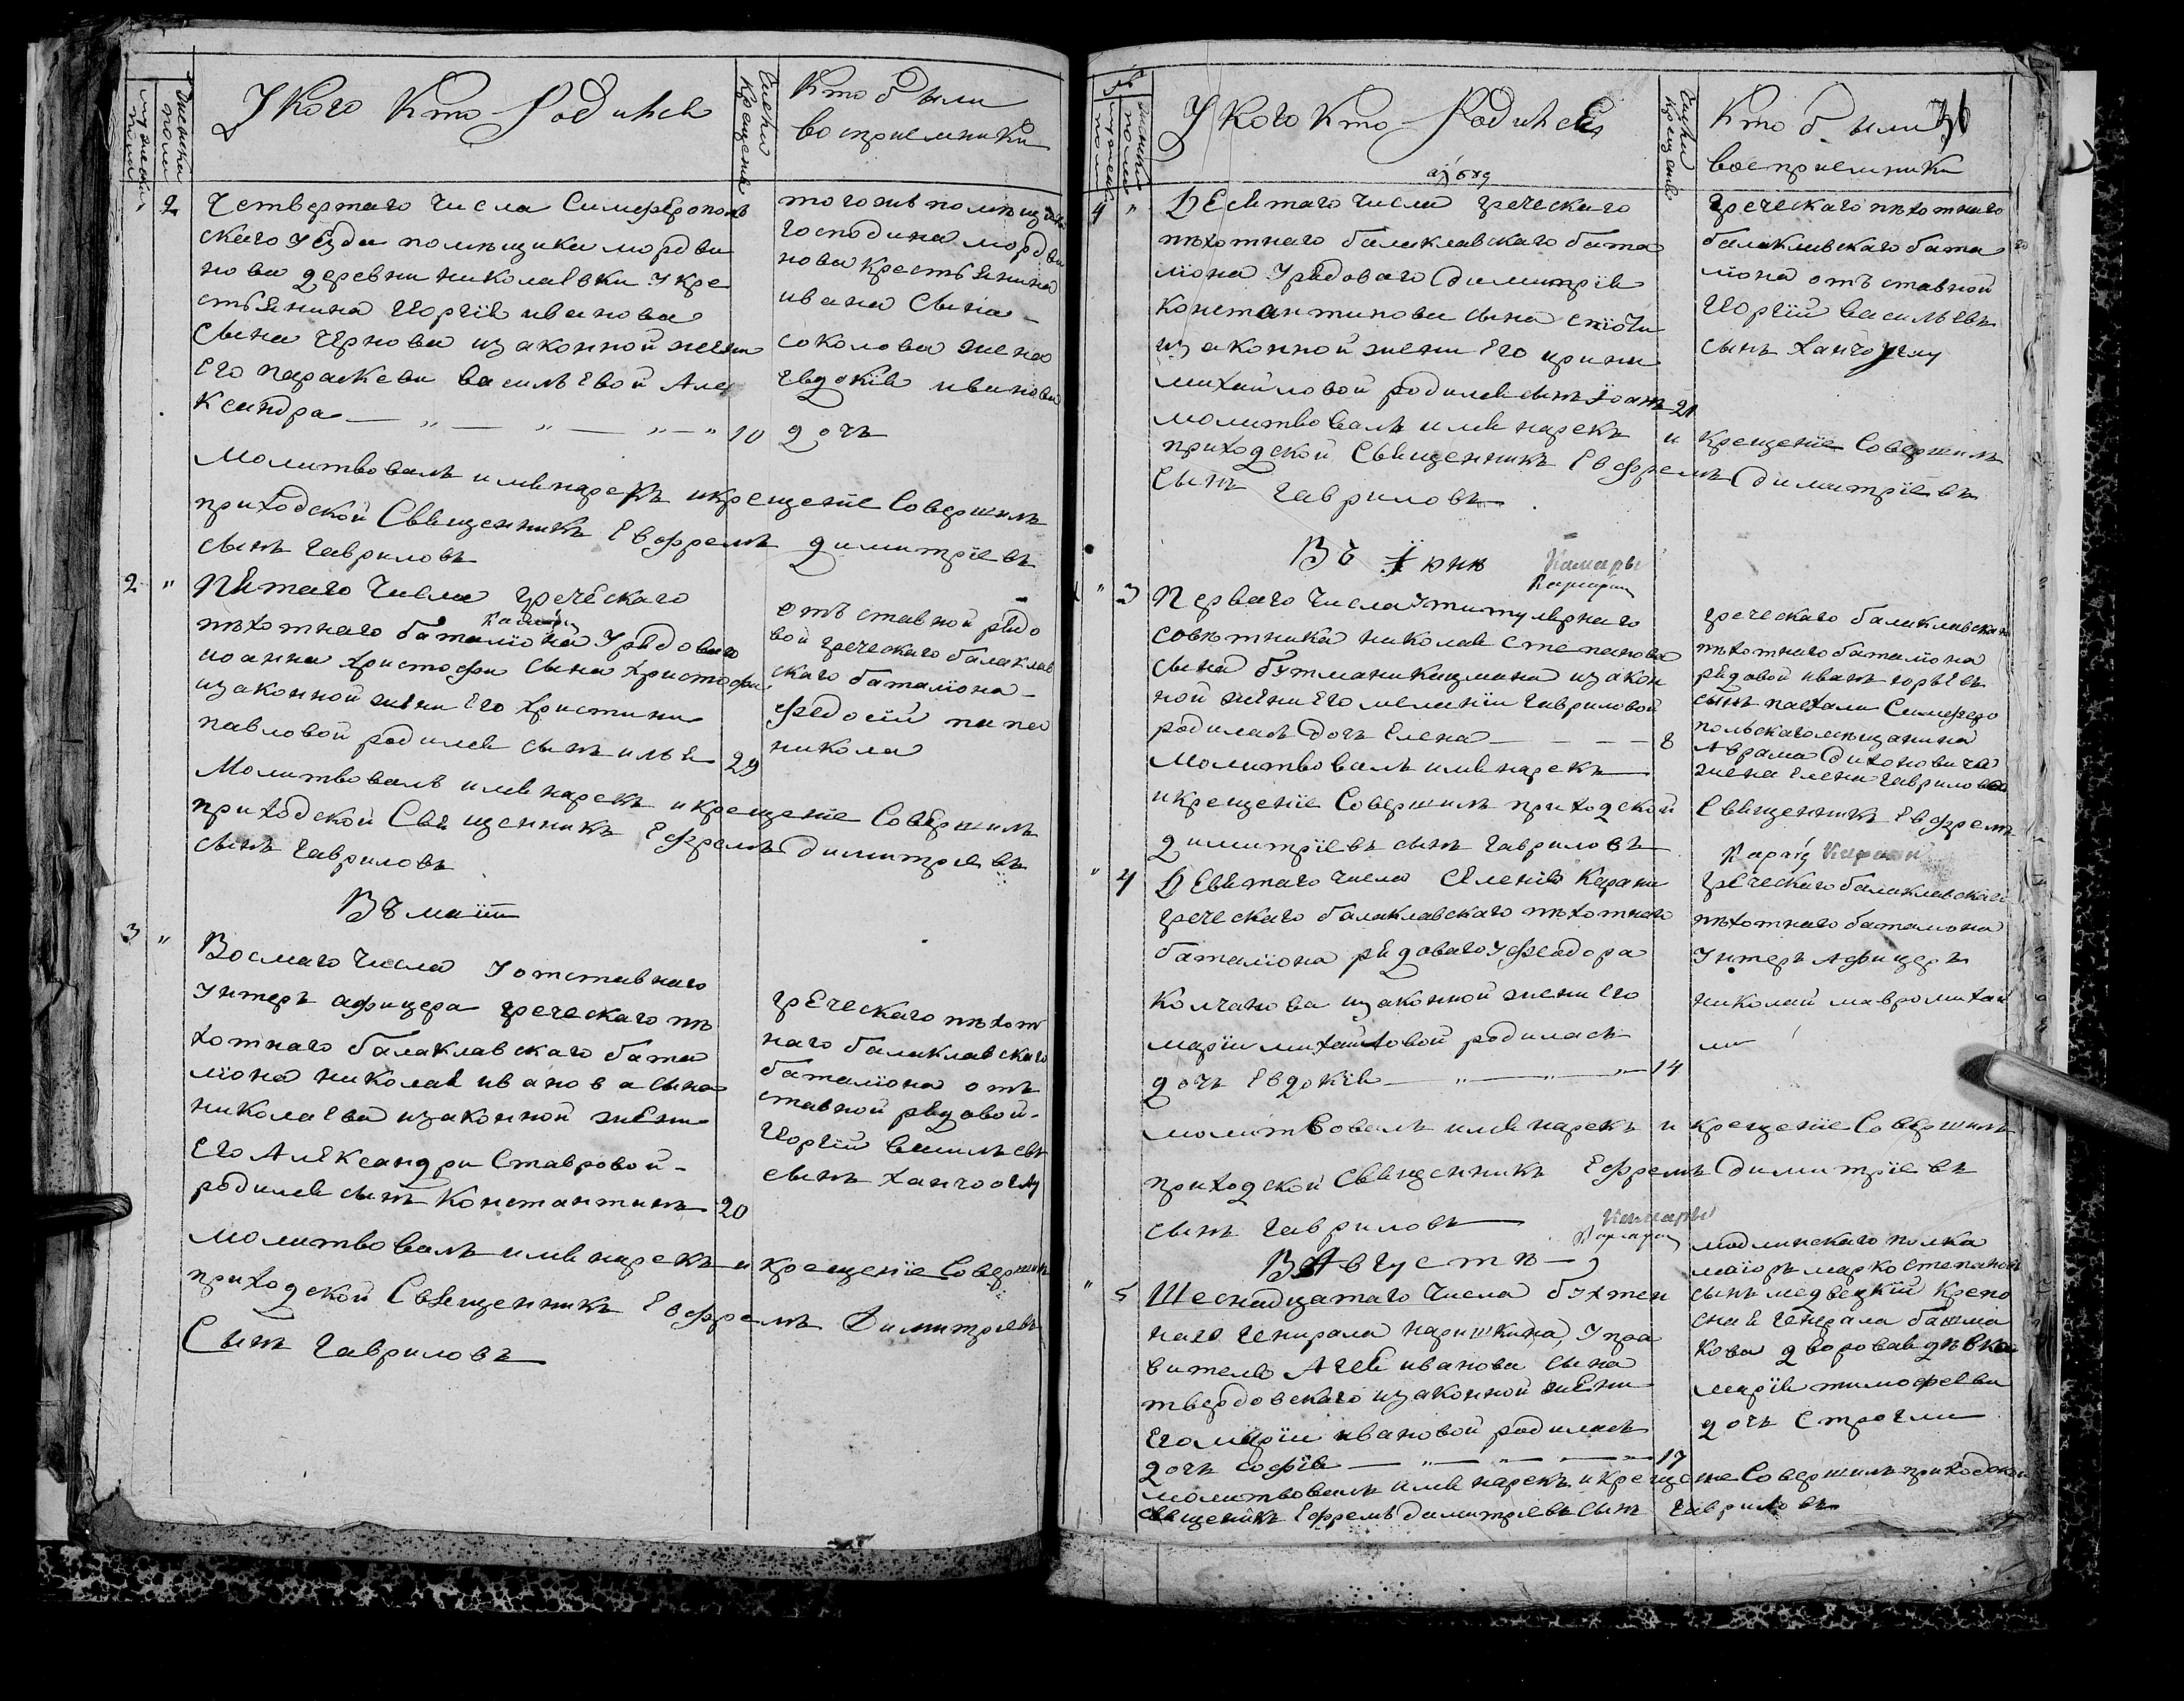 У Кого Кто Родился
Кто были
восприемники
2 Четвертаго Числа Симферополь
скаго уезда помѣщика мордви
нова деревни николаевки У кре
стьянина Георгія иванова
сына Чернова изаконной жены
его параскеви васильевой Але
ксандра 10
тогожъ помѣщика
господина мордви
нова крестьянина
ивана Сына
соколова жена
Евдокія иванова
дочъ
Молитвовалъ имя нарекъ и крещеніе Совершилъ
приходской Священникъ Евфремъ димитріевъ
сынъ Гавриловъ
2 " Пятаго Числа греческаго
пѣхотнаго баталіона У рядоваго
иоанна христофи сына христофи
изаконной жены Его христины
павловой родился сынъ илья 29
отъ ставной рядо
вой греческаго балаклав
скаго баталіона
федосій папа
никола
Молитвовалъ имя нарекъ и крещеніе Совершилъ
приходской Священникъ Ефремъ димитріевъ
сынъ Гавриловъ
Въ маіи
3 " Восмаго Числа У отставнаго
Унтеръ афицера греческаго пѣ
хотнаго балаклавскаго бата
ліона николая иванова сына
николаева изаконной жены
Его Александри Ставровой
родился сынъ Константинъ 20
греческаго пѣхот
наго балаклавскаго
баталіона отъ
ставной рядовой
Георгій василъевъ
сынъ ханчоглу
молитвовалъ имя нарекъ и крещеніе Совершилъ
приходской Священникъ Евфремъ Димитріевъ
Сынъ Гавриловъ
У Кого Кто Родился
Кто были 36
восприемники
4 " Десятаго числа греческаго
пѣхотнаго балаклавскаго бата
ліона У рядоваго димитрія
константинова сына
изаконной жены Его ирины
михайловой родился сынъ Іоанъ 21
греческаго пѣхотнаго
балаклавскаго бата
ліона отъ ставной
Георгій василъевъ
сынъ ханчоглу
молитвовалъ имя нарекъ и крещеніе Совершилъ
приходской Священникъ Евфремъ димитріевъ
Сынъ Гавриловъ
Въ Іюнѣ Камары
" 3 Перваго числа У титулярнаго
совѣтника николая степанова
сына изакон
ной жены Его меланіи Гавриловой
родилась дочъ Елена 8
греческаго балаклавскаго
пѣхотнаго баталіона
рядовой иванъ юрьевъ
сынъ пасхали Симферо
польскаго мещанина
Аврама
жена Елена Гаврилова
Молитвовалъ имя нарекъ
и крещеніе Совершилъ приходской Священникъ Евфремъ
димитріевъ сынъ Гавриловъ
" 4 Девятаго числа Селенія Карани
греческаго балаклавскаго пѣхотнаго
баталіона рядоваго У феодора
Колчанова изаконной жены Его
маріи михайловой родилась
дочъ Евдокія 14
греческаго балаклавскаго
пѣхотнаго баталіона
Унтеръ Афицеръ
николай мавромихай
ли
молитвовалъ имя нарекъ и крещеніе Совершилъ
приходской Священникъ Ефремъ димитріевъ
сынъ Гавриловъ Камары
В Августѣ
" 5 Шеснадцатаго числа
наго Генирала наришкина, У пра
вителя Агея иванова сына
твердовскаго изаконной жены
Его маріи ивановой родилась
дочъ софія 17
модлинскаго полка
маіоръ марко степановъ
сынъ медвецкій крепо
сная Генерала башма
кова дворовая дѣвка
марія тимофеева
дочъ
молитвовалъ имя нарекъ и крещеніе Совершилъ приходской
священикъ Ефремъ димитріевъ сынъ Гавриловъ